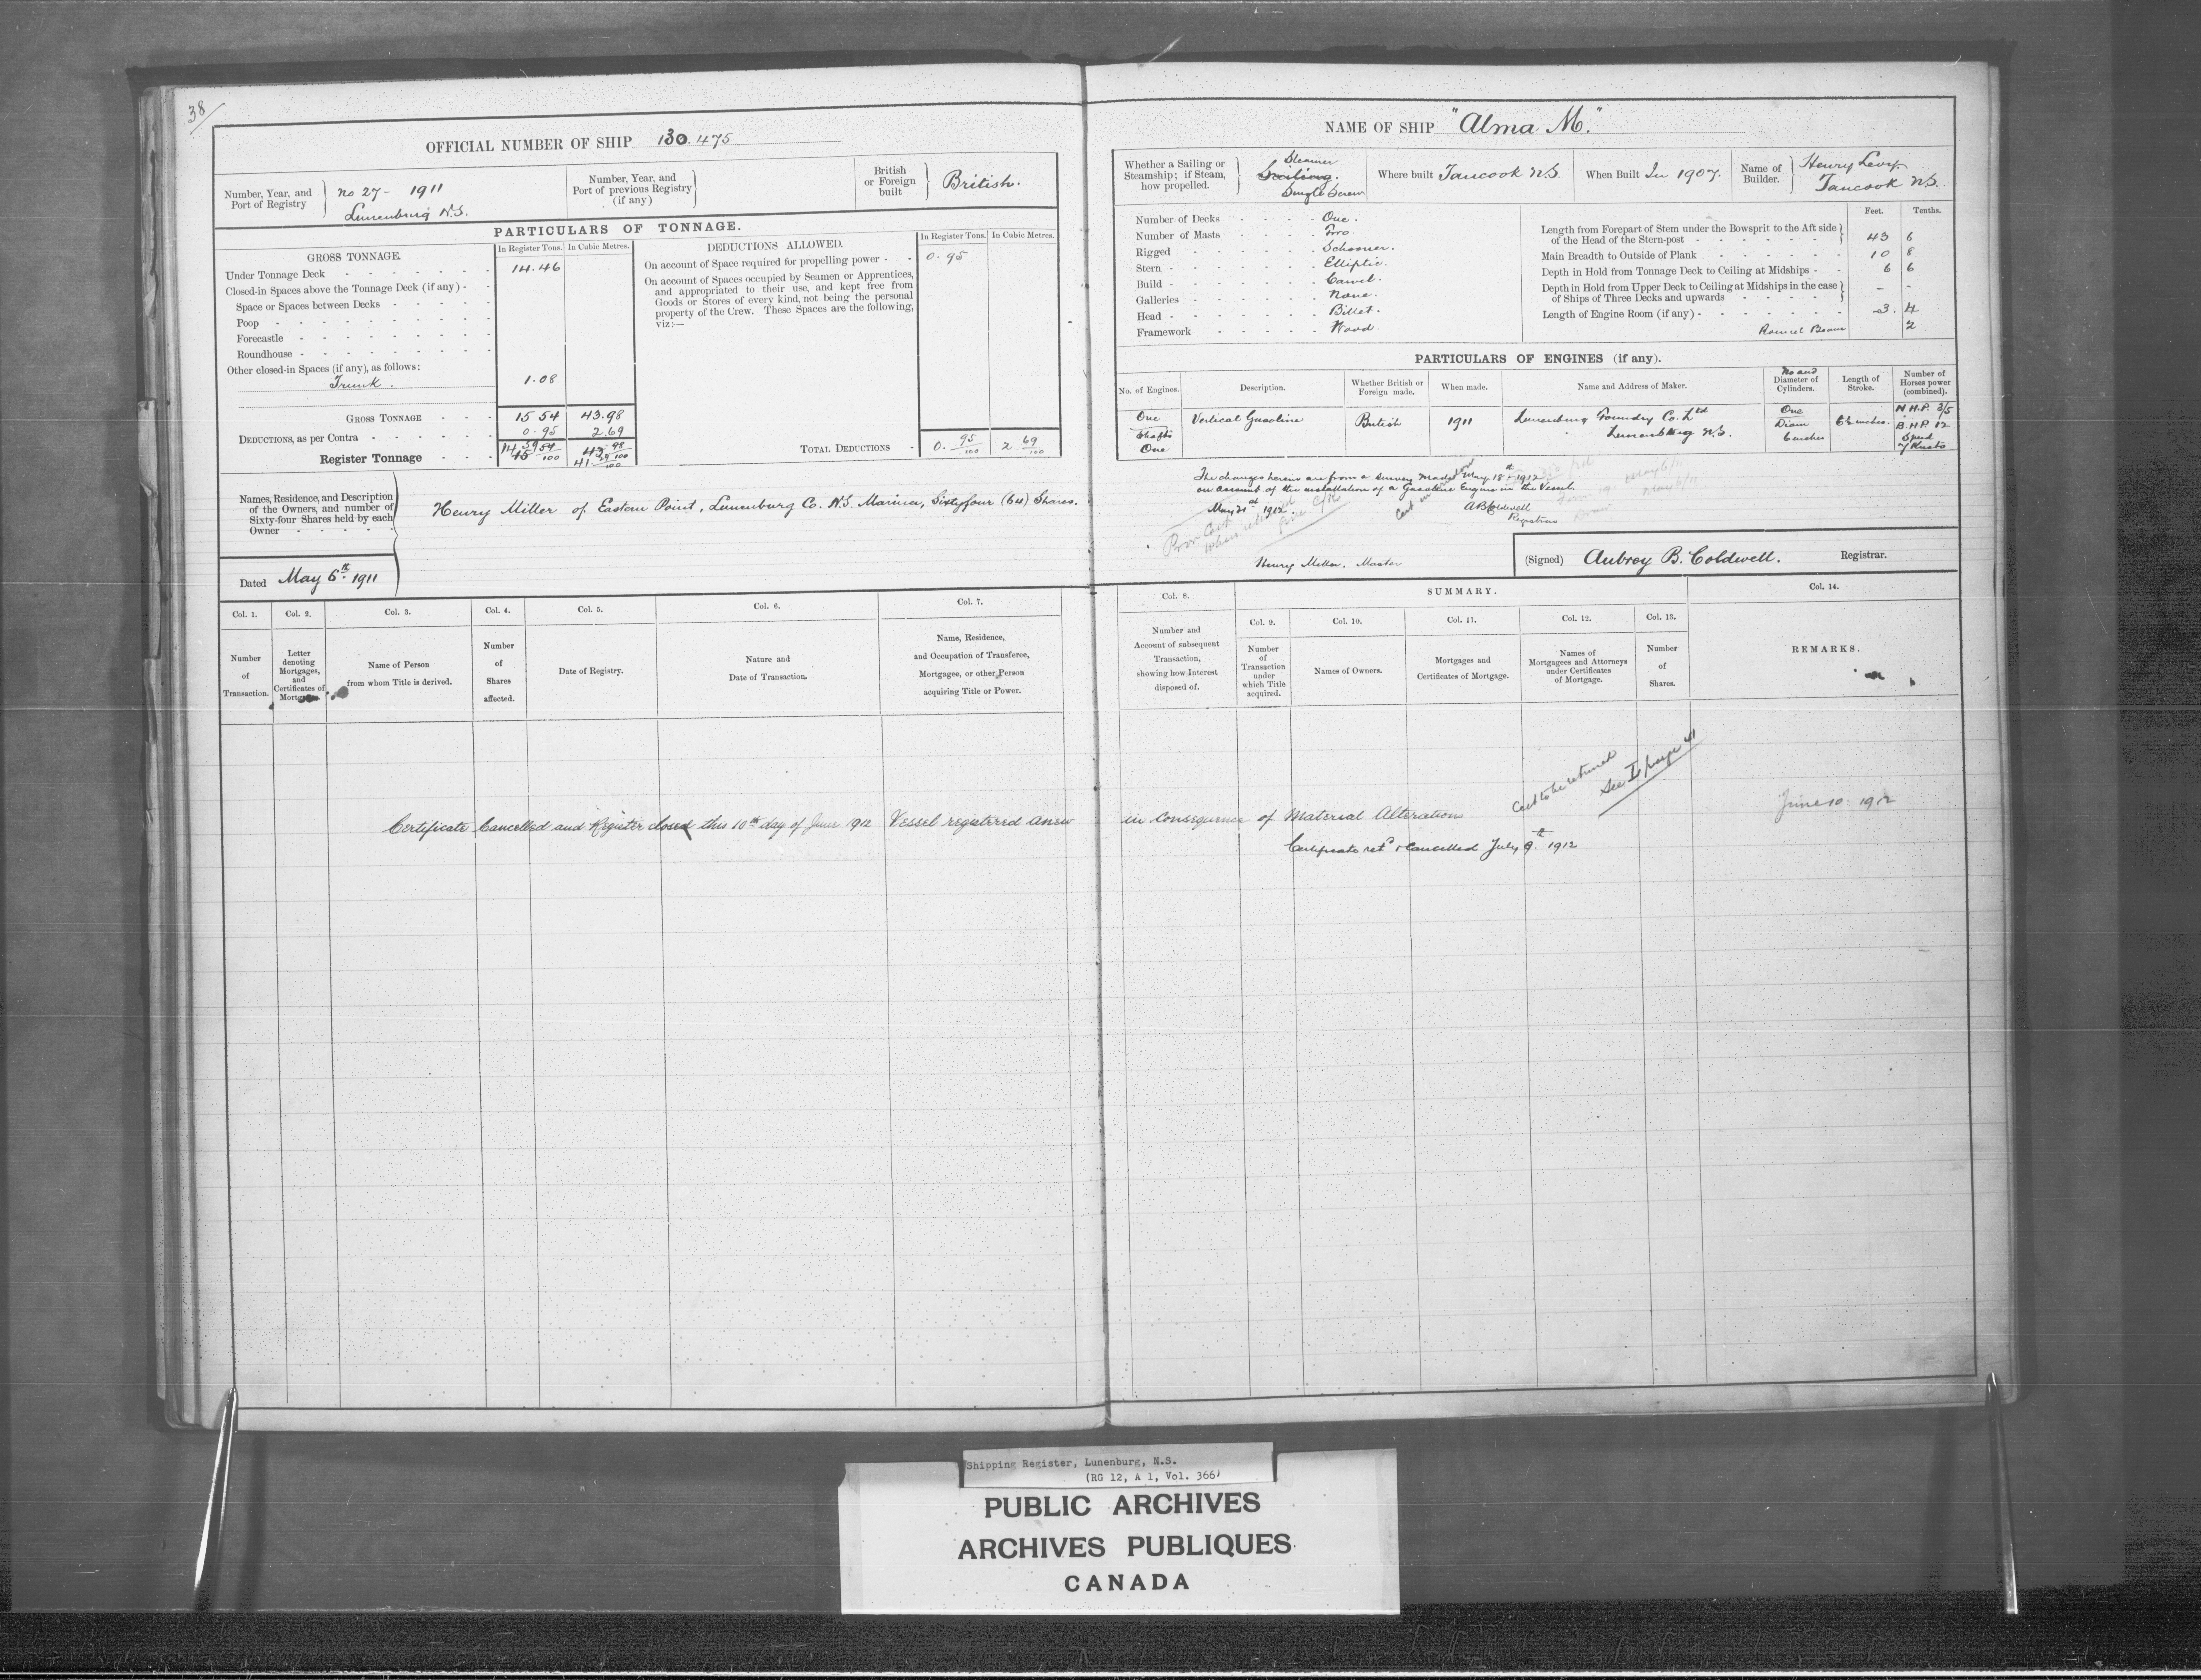 38/
OFFICIAL NUMBER OF SHIP 130.475
Number, Year, and Port of Registry
No 27 - 1911
Lunenburg N.S.
Number, Year, and Port of previous Registry (if any)
British or Foreign built
British.
PARTICULARS OF TONNAGE.
GROSS TONNAGE.
In Register Tons. In Cubic Metres.
Under Tonnage Deck 14.46
Closed-in Spaces above the Tonnage Deck (if any) -
Space or Spaces between Decks
Poop
Forecastle
Roundhouse
Other closed-in Spaces (if any), as follows:
Trunk. 1.08
GROSS TONNAGE 15 54 43.98
DEDUCTIONS, as per Contra 0.95 2.69
Register Tonnage 14 59 15 54/100 43 98/100 41 29/100
DEDUCTIONS ALLOWED.
In Register Tons. In Cubic Metres.
On account of Space required for propelling power - 0.95
On account of Spaces occupied by Seamen or Apprentices,
and appropriated to their use, and kept free from
Goods or Stores of every kind, not being the personal
property of the Crew. These Spaces are the following,
viz:—
TOTAL DEDUCTIONS 0. 95/100 2 69/100
Names, Residence, and Description
of the Owners, and number of
Sixty-four Shares held by each
Owner
Henry Miller of Eastern Point, Lunenburg Co. N.S. Mariner, Sixty four (64) Shares.
Dated May 6th 1911
Col. 1. Number of Transaction.
Col. 2. Letter denoting Mortgages, and Certificates of Mortgage
Col. 3. Name of Person from whom Title is derived.
Col. 4. Number of Shares affected.
Col. 5. Date of Registry.
Col. 6. Nature and Date of Transaction.
Col. 7. Name, Residence, and Occupation of Transferee, Mortgagee, or other Person acquiring Title or Power.
NAME OF SHIP "Alma M."
Whether a Sailing or Steamship; if Steam, how propelled.
Steamer
Sailing.
Single Screw
Where built Tancook N.S.
When Built In 1907.
Name of Builder.
Henry Levy.
Tancook N.S.
Number of Decks - One.
Number of Masts - Two.
Rigged - Schooner.
Stern - Elliptic.
Build - Carvel.
Galleries - None.
Head - Billet.
Framework - Wood.
Feet. Tenths.
Length from Forepart of Stem under the Bowsprit to the Aft side
of the Head of the Stern-post 43 6
Main Breadth to Outside of Plank 10 8
Depth in Hold from Tonnage Deck to Ceiling at Midships - 6 6
Depth in Hold from Upper Deck to Ceiling at Midships in the case
of Ships of Three Decks and upwards - -
Length of Engine Room (if any) - 3. 4
Round Beam 2
PARTICULARS OF ENGINES (if any).
No. of Engines. Description. Whether British or Foreign made. When made. Name and Address of Maker. No and Diameter of Cylinders. Length of Stroke. Number of Horses power (combined).
One Vertical Gasoline British 1911 Lunenburg Foundry Co. Ltd One N.H.P. 3/5
Shafts Lunenburg N.S. Diam B.H.P. 12
One 6 inches Speed
7 Knots
The changes hereon are from a survey made May 18th 1912
on account of the installation of a Gasoline Engine in the Vessel.
May 21st 1912.
A B Coldwell
Registrar
Henry Miller. Master
(Signed) Aubrey B. Coldwell. Registrar.
Col. 8. Number and Account of subsequent Transaction, showing how Interest disposed of.
SUMMARY.
Col. 9. Number of Transaction under which Title acquired.
Col. 10. Names of Owners.
Col. 11. Mortgages and Certificates of Mortgage.
Col. 12. Names of Mortgagees and Attorneys under Certificates of Mortgage.
Col. 13. Number of Shares.
Col. 14. REMARKS.
Cert to be returned
See I page 41
Certificate Cancelled and Register closed this 10th day of June 1912 Vessel registered anew in Consequence of Material Alterations June 10. 1912
Certificate retd & Cancelled July 9th 1912
Shipping Register, Lunenburg, N.S.
(RG 12, A 1, Vol. 366)
PUBLIC ARCHIVES
ARCHIVES PUBLIQUES
CANADA